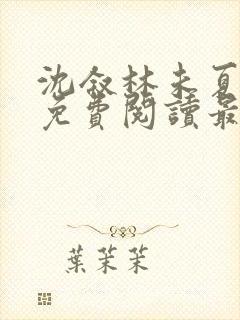 沈叙林未夏
免費閱讀最
葉茉茉